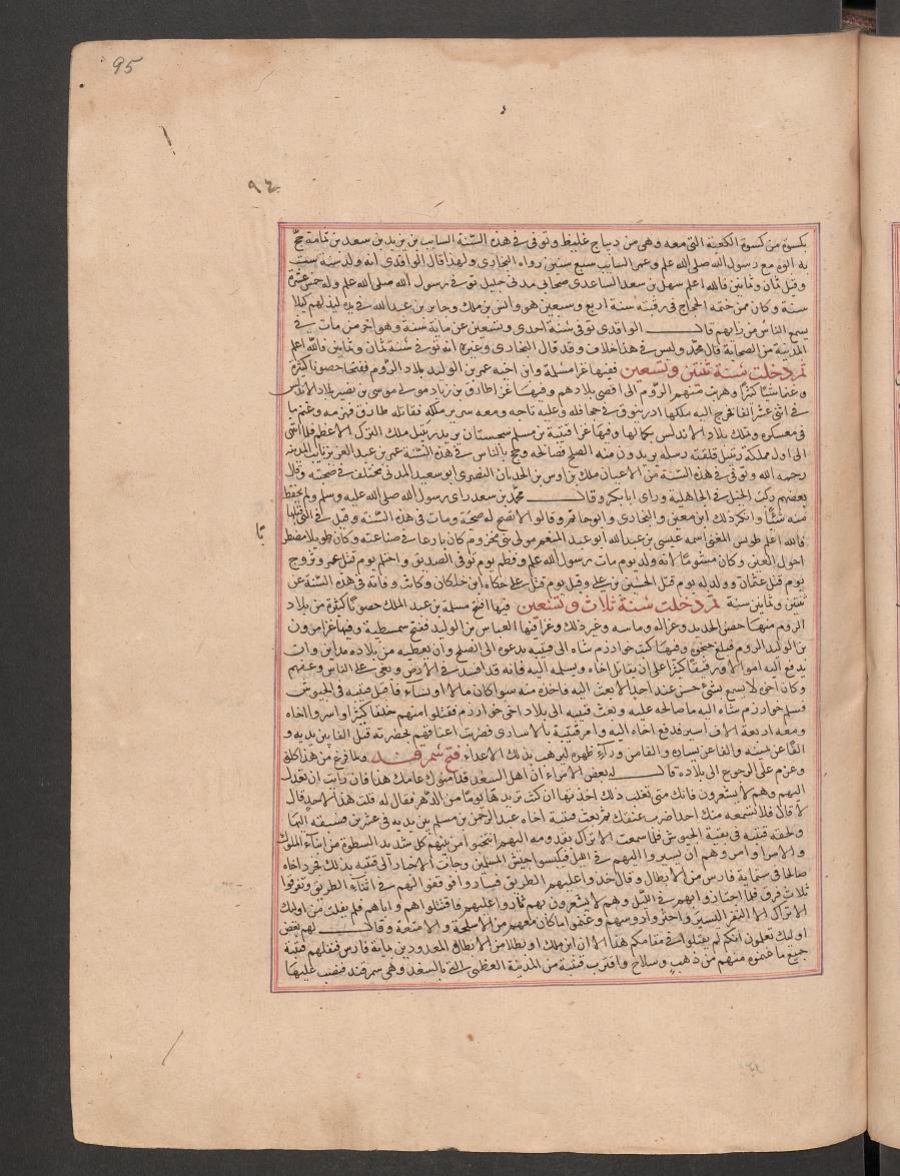 95
٩٤
بكسوة من كسوة الكعبة التى معه وهى من ديباج غليظ وتوفى فى هذه السّنة السايب بن يزيد بن سعد بن ثمامة حج
به ابوه مع رسول الله صلى الله علم وعمر السايب سبع سنين رواه البخارى ولهذا قال الواقدى انه ولد سنة ست
وقيل ثمان وثمانين فالله اعلم سهل بن سعد الساعدى صحابى مدنى جليل توفى رسول الله صلى الله علم وله خمس عشرة
سنة وكان ممن ختمه الحجاج فى رقبته سنة اربع وسبعين هو وانس بن ملك وجابر بن عبدالله فى يده ليذلهم كيلا
يسمع الناس من رايهم قال الواقدى توفى سنة احدى وتسعين عن ماية سنة وهو اخر من مات فى
المدينة من الصحابة قال محمد وليس فى هذا خلاف وقد قال البخارى وغيره انه توفى سنة ثمان وثمانين فالله اعلم
ثم دخلت سنة ثنتين وتسعين ففيها غزا مسلمة وابن اخيه عمر بن الوليد بلاد الرّوم ففتحا حصونا كثيرة
وغنما شيئا كثيرًا وهربت منهم الرّوم الى اقصى بلادهم وفيها غزا طارق بن زياد مولى موسى بن نصير بلاد الاندلس
فى اثنى عشر الفا فخرج اليه ملكها ادرينوق فى جحافله وعليه تاجه ومعه سرير ملكه فقاتله طارق فهزمه وغنم ما
فى معسكره وتملك بلاد الاندلس بكمالها وفيها غزا قتيبة بن مسلم سجستان يريد رتبيل ملك الترك الاعظم فلما انتهى
الى اول مملكة رتبيل تلقته رسله يريدون منه الصلح فصالحه وحج بالناس فى هذه السّنة عمر بن عبد العزيز نايب المدينة
رحمه الله وتوفى فى هذه السّنة من الاعيان ملك بن اوس بن الحدثان النصرى ابو سعيد المدنى مختلف فى صحبته وقال
بعضهم ركب الخيل فى الجاهلية وراى ابا بكر وقال محمّد بن سعد راى رسول الله صلى الله عليه وسلم ولم يحفظ
منه شيئًا وانكر ذلك ابن معين والبخارى وابو حاتم وقالوا لا تصح له صحبة ومات فى هذه السّنة وقيل فى التى قبلها
فالله اعلم طويس المغنى اسمه عيسى بن عبد الله ابو عبد المنعم مولى بنى مخزوم كان بارعا فى صناعته وكان طويلا مضطربا
احول العين وكان مشئومًا لانه ولد يوم مات رسول الله علم وفطم يوم توفى الصديق واحتلم يوم قتل عمر وتزوج
يوم قتل عثمان وولد له يوم قتل الحسين بن على وقيل يوم قتل على حكاه ابن خلكان وكانت وفاته فى هذه السّنة عن
ثنتين وثمانين سنة ثم دخلت سنة ثلاث وتسعين فيها افتتح مسلمة بن عبد الملك حصونًا كثيرة من بلاد
الروم منها حصن الحديد وغزاله وماسه وغير ذلك وغزا فيها العباس بن الوليد ففتح سمسطية وفيها غزا مروان
بن الوليد الروم فبلغ خنجرة وفيها كتب خوارزم شاه الى قتيبة يدعوه الى الصلح وان يعطيه من بلاده مداين وان
يدفع اليه اموالا ورقيقًا كثيرًا على ان يقاتل اخاه ويسلمه اليه فانه قد افسد فى الارض وبغى على الناس وعسفهم
وكان اخوه لا يسمع بشئ حسن عند احد الا بعث اليه فاخذه منه سوا كان مالا او نساء فاقبل قتيبة فى الجيوش
فسلم خوارزم شاه اليه ما صالحه عليه وبعث قتيبة الى بلاد اخى خوارزم فقتلوا منهم خلقا كثيرًا واسروا اخاه
ومعه اربعة الاف اسير فدفع اخاه اليه وامر قتيبة بالاسارى فضربت اعناقهم بحضرته قيل الفا بين يديه و
الفًا عن يمينه والفا عن يساره والفا من ورآء ظهره ليرهب بذلك الاعداء فتح سمرقند ولما فرغ من هذا كله
وعزم على الرجوع الى بلاده قال له بعض الامراء ان اهل السغد قد امنوك عامك هذا فان رايت ان تعدل
اليهم وهم لا يشعرون فانك متى تفعل ذلك اخذتها ان كنت تريدها يومًا من الدّهر فقال له قلت هذا لاحد قال
لا قال فلان يسمعه منك احد اضرب عنقك ثم بعث قتيبة اخاه عبد الرحمن بن مسلم بين يديه فى عشرين الفا
ولحقه قتيبة فى بقية الجيوش فلما سمعت الاتراك بقدومه اليهم انتخبوا من بينهم كل شديد السطوة من ابنآء الملوك
والامرا وامروهم ان يسيروا اليهم فى الليل فيكبسوا جيش المسلمين وجات الاخبار الى قتيبة بذلك فجرد اخاه
صالحا فى ستماية فارس من الابطال وقال خذوا عليهم الطريق فساروا فوقفوا لهم فى اثنآء الطريق وتفرقوا
ثلاث فرق فلما اجتازوا بهم فى الليل وهم لا يشعرون بهم ثاروا عليهم فاقتتلوا هم واياهم فلم يفلت من اوليك
الاتراك الا النفر اليسير واحتزوا روسهم وغنموا ما كان معهم من الاسلحة والامتعة وقال لهم بعض
اوليك تعلمون انكم لم تقتلوا فى مقامكم هذا الا ابن ملك او بطلا من الابطال المعدودين بماية فارس فنفلهم قتيبة
جميع ما غنموه منهم من ذهب وسلاح واقترب قتيبة من المدينة العظمى التى بالسغد وهى سمرقند فنصب عليها